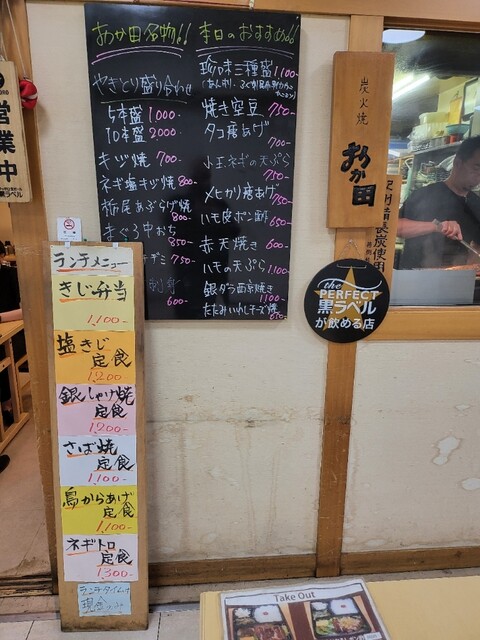 あか田名物!!
やきとり盛り合わせ
5本盛 1000-
10本盛 2000-
キジ焼 700-
ネギ塩キジ焼 800-
栃尾あぶらげ焼 800-
まぐろ中おち 850-
750-
600-
本日のおすすめ!!
珍味三種盛 1100-
焼き空豆 750-
タコ唐あげ 700-
小玉ネギの天ぷら 750-
メヒカリ唐あげ 750-
ハモ皮ポン酢 650-
赤天焼き 600-
ハモの天ぷら 1,100-
銀ダラ西京焼き 1100-
たたみいわしチーズ焼 650-
営業中
黒ラベル
炭火焼
おか田
紀州備長炭使用
the PERFECT
黒ラベル
が飲める店
ランチメニュー
きじ弁当
1,100-
塩きじ
定食
1,200-
銀しゃけ焼
定食
1,200-
さば焼
定食
1,100-
鳥からあげ
定食
1,100-
ネギトロ
定食
1300-
ランチタイムは
現金のみ
Take Out